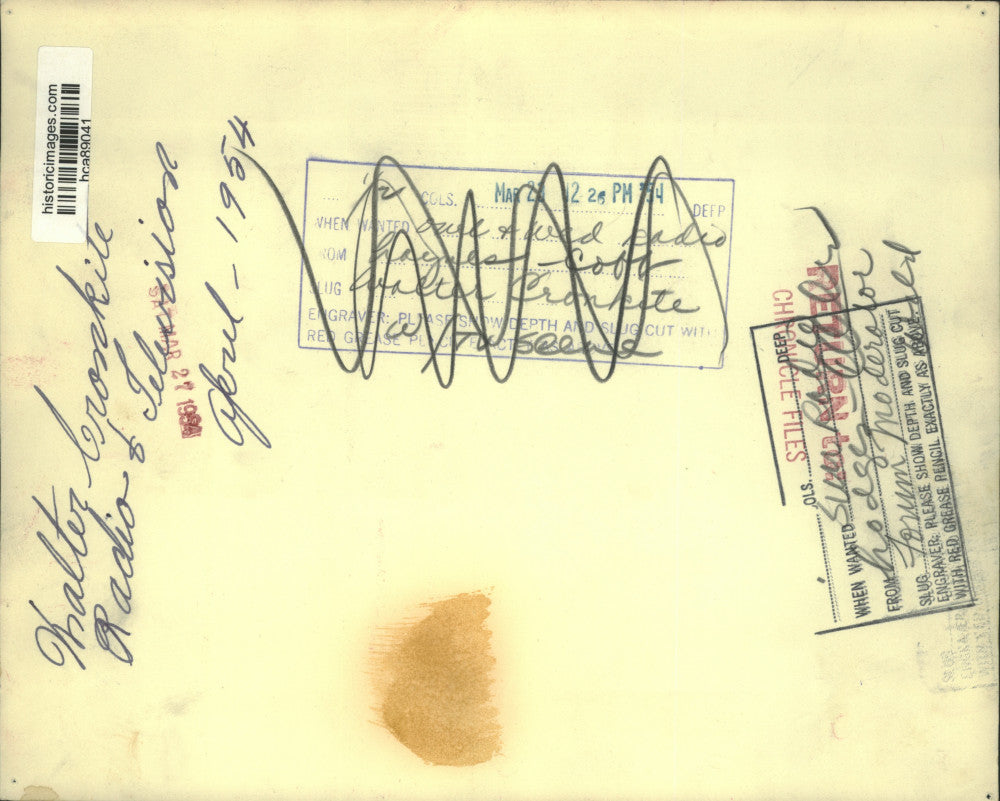 historicimages.com
hca89041
Walter Cronkite
Radio & Television
April - 1954
MAR 27 1954
COLS. MAR 2 12 28 PM '54 DEEP
WHEN WANTED owe & wed radio
FROM Haynes Copy
SLUG Walter Cronkite
ENGRAVER: PLEASE SHOW DEPTH AND SLUG CUT WITH
RED GREASE PENCIL EXACTLY AS
RETURN to
CHRONICLE FILES
COLS. DEEP
WHEN WANTED Sun
FROM hodges moderator
SLUG forum
ENGRAVER: PLEASE SHOW DEPTH AND SLUG CUT
WITH RED GREASE PENCIL EXACTLY AS ABOVE